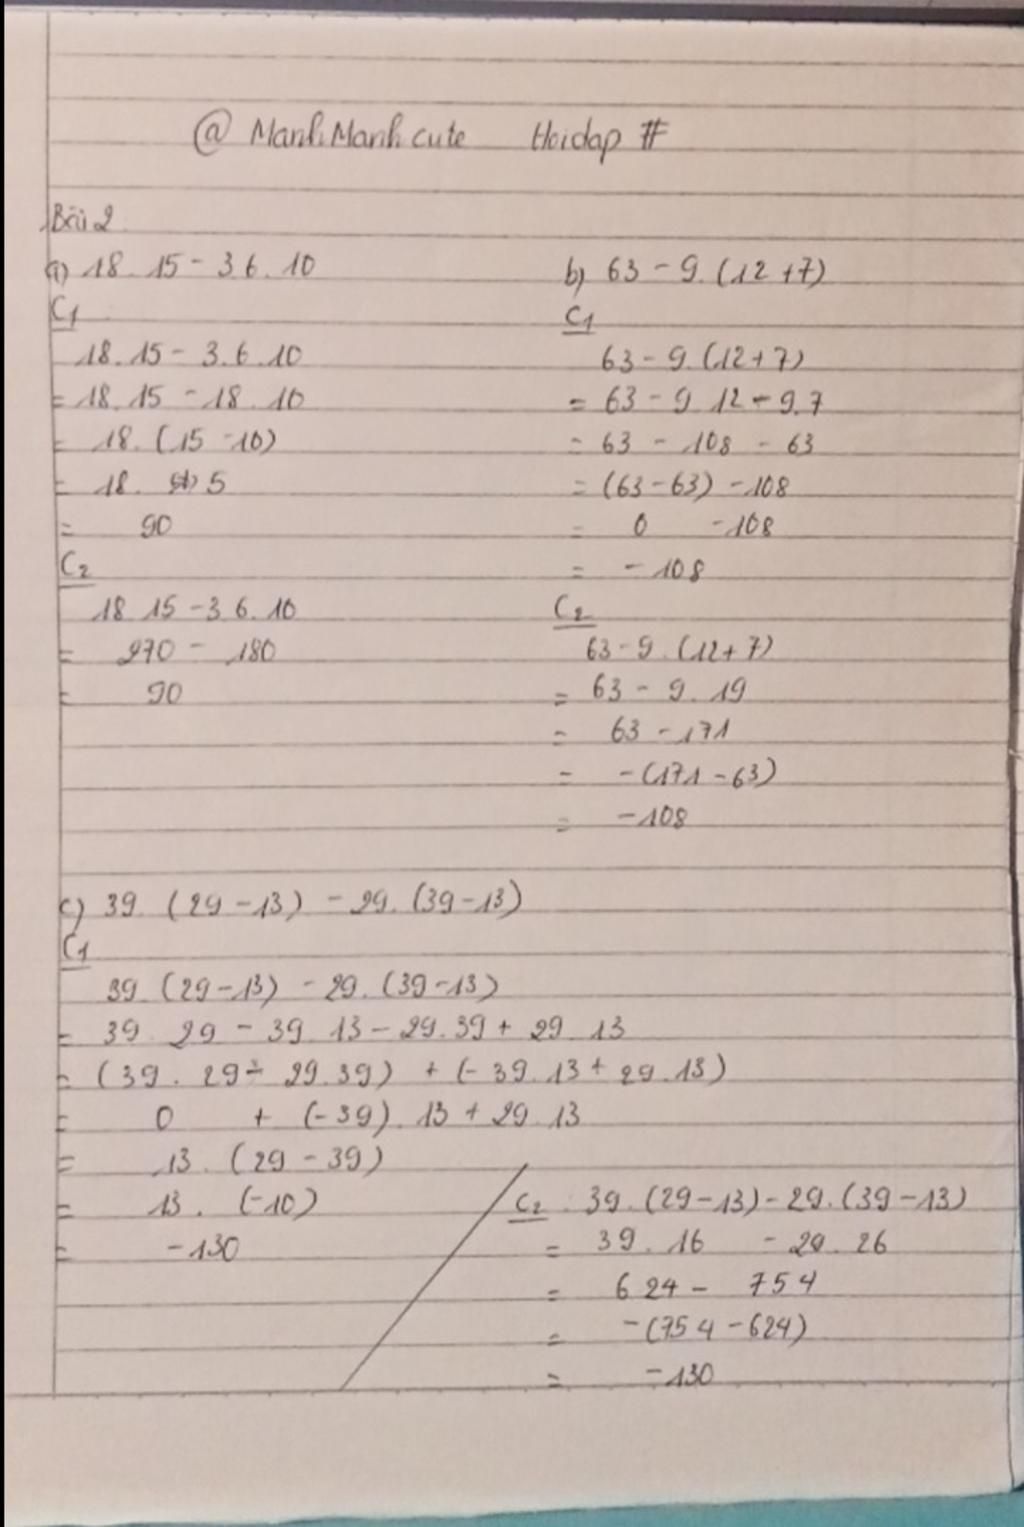 @ ManhManh cute Hoidap #
Bài 2
a) 18. 15 - 3.6. 10
C1
18.15 - 3.6.10
= 18.15 - 18.10
= 18. (15 -10)
= 18. 5
= 90
C2
18 15 - 3 6. 10
= 270 - 180
= 90
b) 63 - 9. (12 + 7)
C1
63 - 9. (12+7)
= 63 - 9 12 - 9.7
= 63 - 108 - 63
= (63 - 63) - 108
= 0 - 108
= - 108
C2
63 - 9. (12 + 7)
= 63 - 9. 19
= 63 - 171
= - (171 - 63)
= - 108
c) 39. (29 - 13) - 29. (39 - 13)
C1
39. (29 - 13) - 29. (39 - 13)
= 39 29 - 39 13 - 29.39 + 29 13
= (39. 29 - 29.39) + (- 39.13 + 29.13)
= 0 + (-39). 13 + 29 13
= 13. (29 - 39)
= 13. (-10)
= -130
C2 39. (29 - 13) - 29. (39 - 13)
= 39. 16 - 29. 26
= 624 - 754
= - (754 - 624)
= - 130